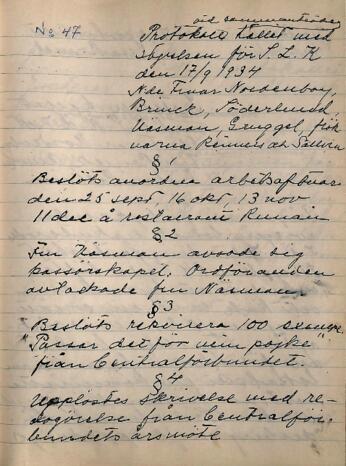 No 47
vid sammanträde
Protokoll hållet med
styrelsen för S. L. K
den 17/9 1934
Nde Fruar Nordenbog,
Brinck, Söderlund,
Näsman, Gruggel, frök
narna Rennens och
§ 1
Beslöts anordna arbetsaftnar
den 25 sept, 16 okt, 13 nov
11 dec å restaurant Runan
§ 2
Fru Näsman avsade sig
kassörskapet. Ordföranden
avtackade fru Näsman.
§ 3
Beslöts rekvirera 100 exempl
"Passar det för min pojke"
från Centralförbundet.
§ 4
Upplästes skrivelse med re-
dogörelse från Centralför-
bundets årsmöte